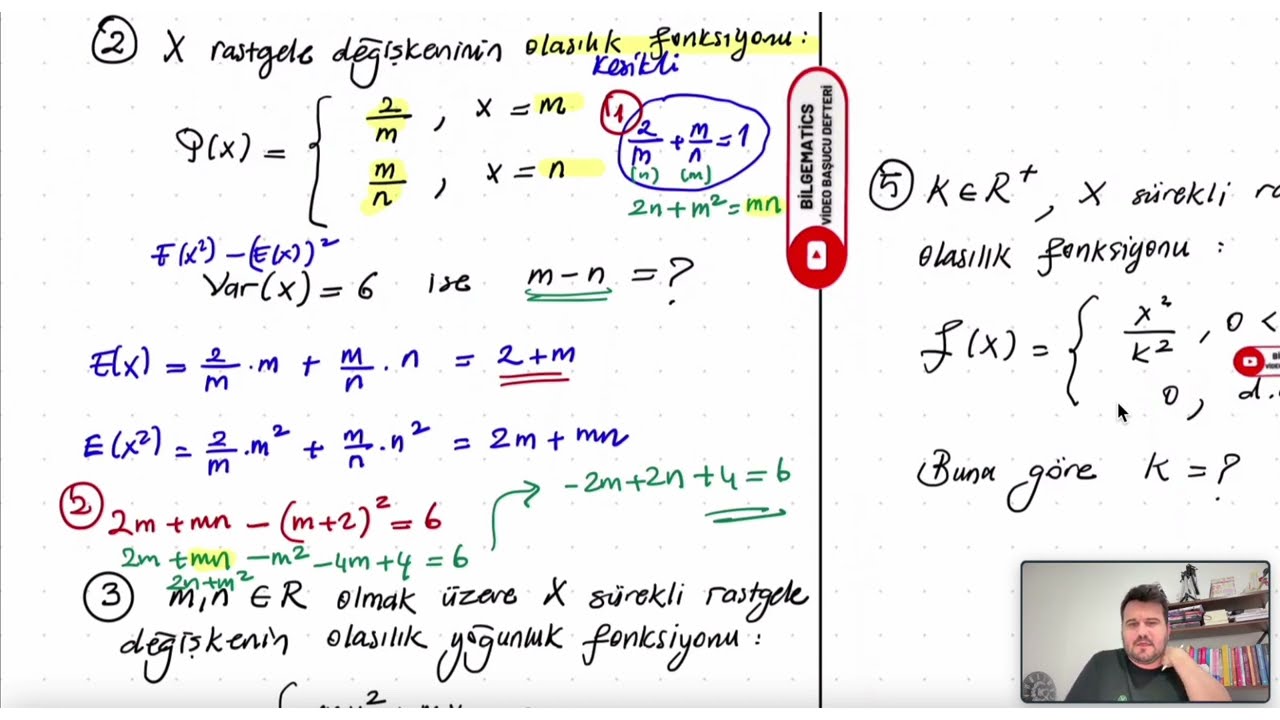 ② X rastgele değişkeninin olasılık fonksiyonu:
kesikli
P(x) = { 2/m , x = m
m/n , x = n
① 2/m + m/n = 1
(n) (m)
2n + m² = mn
E(x²) - (E(x))²
Var(x) = 6 ise m-n = ?
E(x) = 2/m · m + m/n · n = 2+m
E(x²) = 2/m · m² + m/n · n² = 2m + mn
② 2m + mn - (m+2)² = 6
2m + mn - m² - 4m + 4 = 6
2n + m²
-2m + 2n + 4 = 6
③ m,n ∈ R olmak üzere X sürekli rastgele
değişkenin olasılık yoğunluk fonksiyonu :
BİLGEMATİCS
VİDEO BAŞUCU DEFTERİ
⑤ K ∈ R⁺, X sürekli
olasılık fonksiyonu :
f(x) = { x²/k² , 0 <
0 , d.
Buna göre K = ?